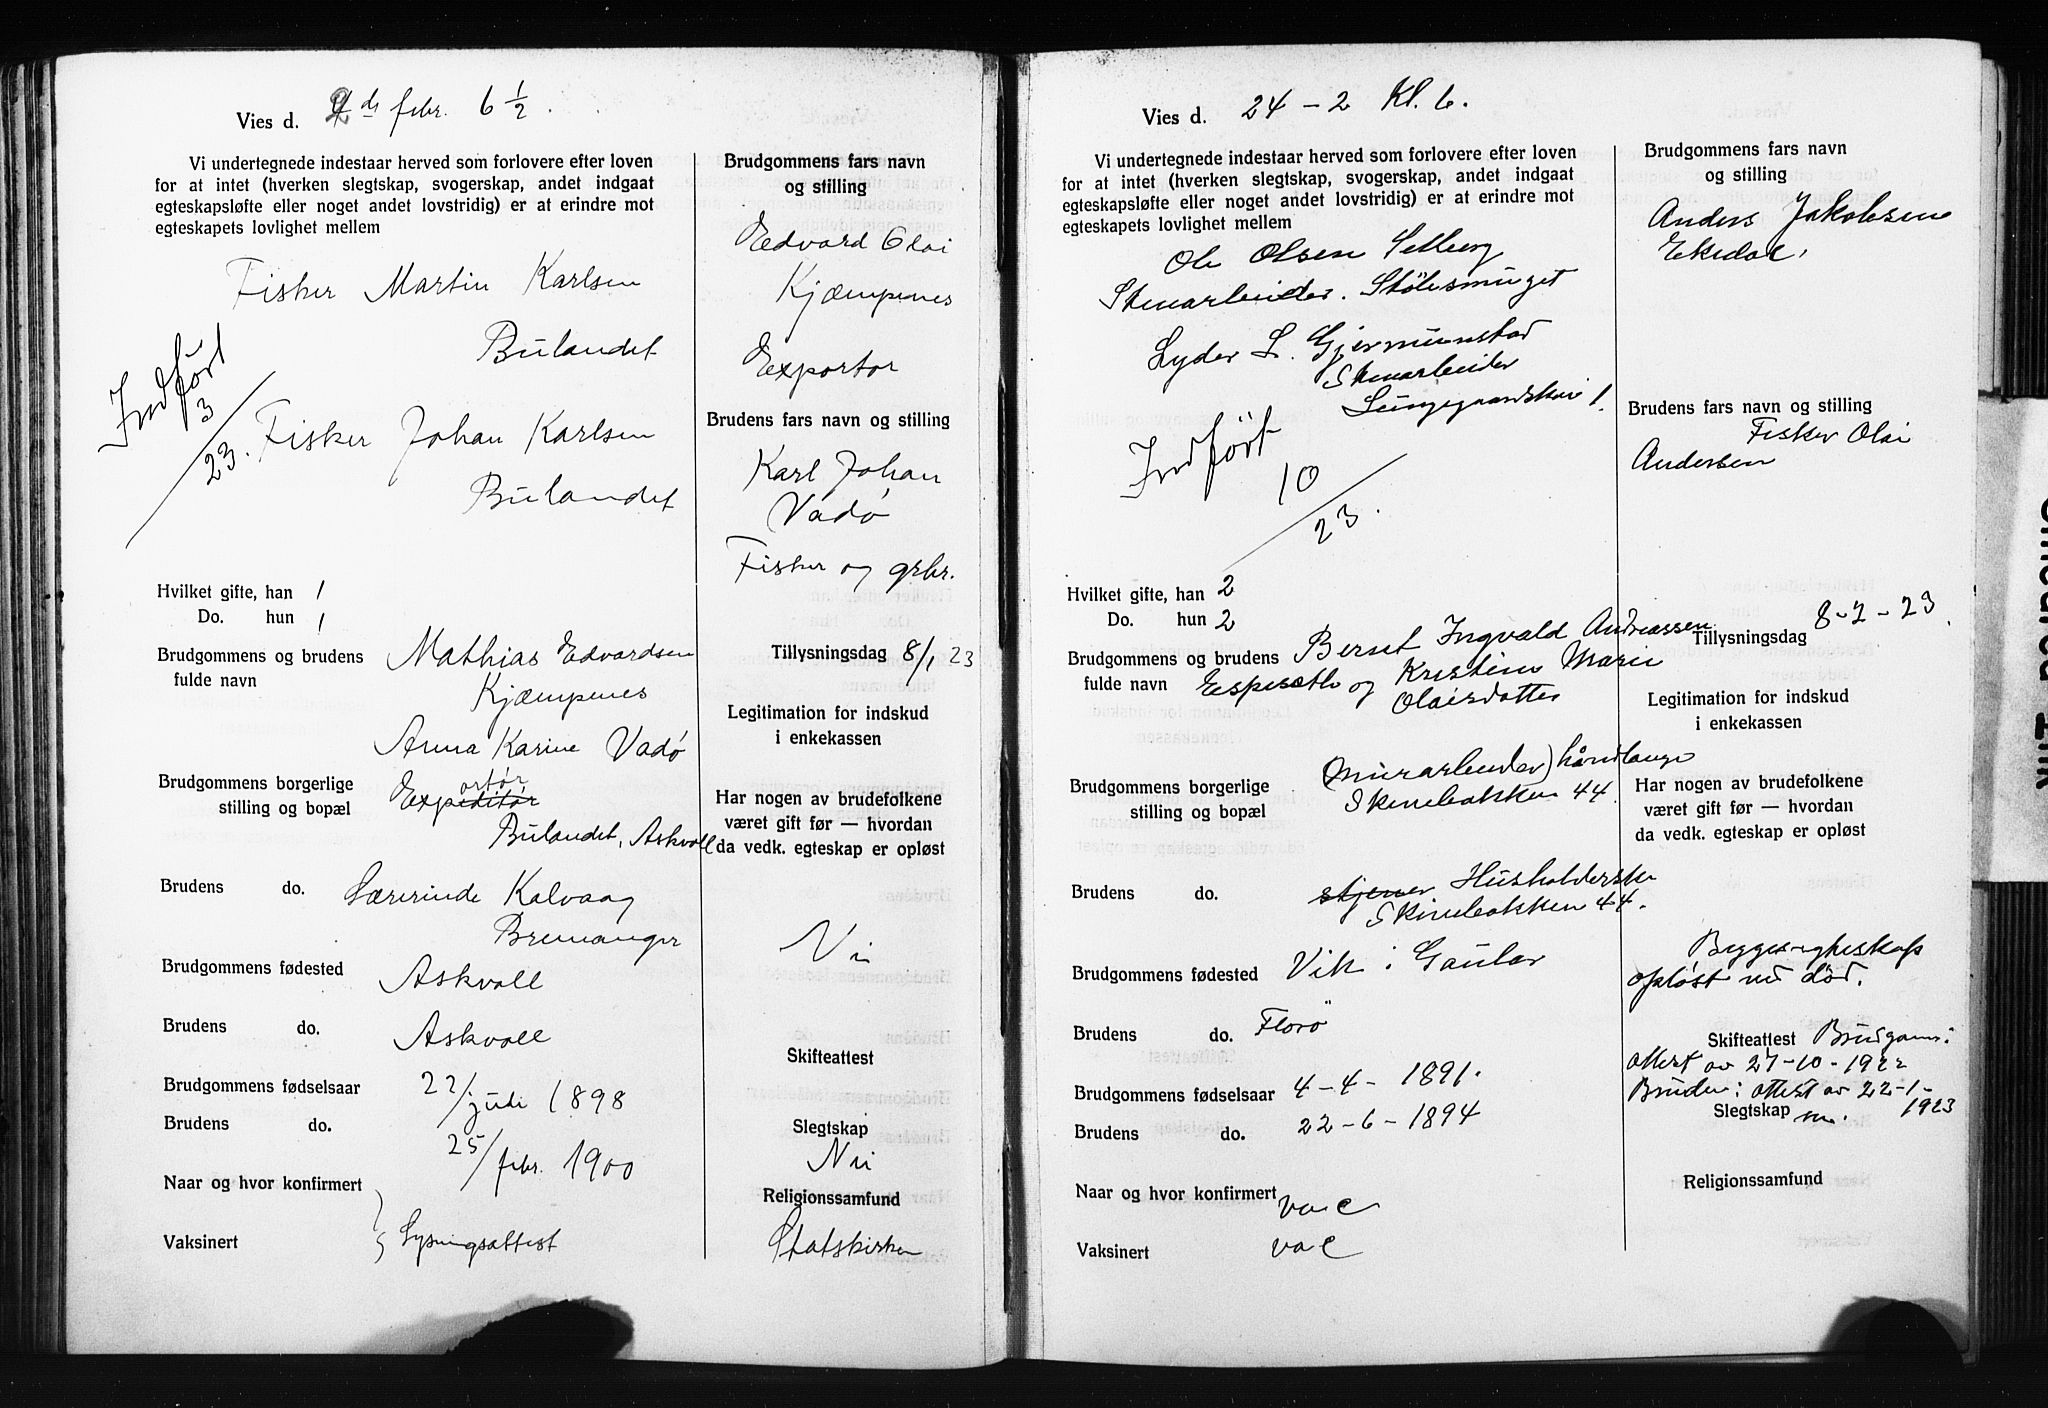 Vies d. 2 de febr. 6 1/2.
Vi undertegnede indestaar herved som forlovere efter loven
for at intet (hverken slegtskap, svogerskap, andet indgaat
egteskapsløfte eller noget andet lovstridig) er at erindre mot
egteskapets lovlighet mellem
Fisker Martin Karlsen
Bulandet
Indført
3/23.
Fisker Johan Karlsen
Bulandet
Brudgommens fars navn
og stilling
Edvard Olai
Kjæmpenes
Exportør
Brudens fars navn og stilling
Karl Johan
Vadø
Fisker og grbr.
Hvilket gifte, han 1
Do. hun 1
Brudgommens og brudens
fulde navn
Mathias Edvardsen
Kjæmpenes
Anna Karine Vadø
Tillysningsdag 8/1 23
Legitimation for indskud
i enkekassen
Brudgommens borgerlige
stilling og bopæl
ortør
Expeditør
Bulandet, Askvoll
Har nogen av brudefolkene
været gift før — hvordan
da vedk. egteskap er opløst
Brudens do.
Lærerinde Kalvaag
Bremanger
Nei
Brudgommens fødested Askvoll
Brudens do. Askvoll
Skifteattest
Brudgommens fødselsaar 22/juli 1898
Brudens do. 25/febr. 1900
Slegtskap
Nei
Naar og hvor konfirmert
Vaksinert
Lysningsattest
Religionssamfund
Statskirken
Vies d. 24-2 Kl. 6.
Vi undertegnede indestaar herved som forlovere efter loven
for at intet (hverken slegtskap, svogerskap, andet indgaat
egteskapsløfte eller noget andet lovstridig) er at erindre mot
egteskapets lovlighet mellem
Ole Olsen Selberg
Stenarbeider. Stølesmuget
Lyder L. Gjermunstad
Stenarbeider
Lungegaardskaie 1.
Indført
10/23.
Brudgommens fars navn
og stilling
Anders Jakobsen
Ekedal,
Brudens fars navn og stilling
Fisker Olai
Andersen
Hvilket gifte, han 2
Do. hun 2
Brudgommens og brudens
fulde navn
Bernt Ingvald Andreassen
Espeseth og Kristine Marie
Olaisdatter
Tillysningsdag 8-2-23.
Legitimation for indskud
i enkekassen
Brudgommens borgerlige
stilling og bopæl
(Murarbeider) håndlanger
Skivebakken 44.
Har nogen av brudefolkene
været gift før — hvordan
da vedk. egteskap er opløst
Brudens do.
Husholderske
Skivebakken 44.
Begges egteskap
opløst ved død.
Brudgommens fødested Vik i Gaular
Brudens do. Florø
Skifteattest Brudgoms:
attest av 27-10-1922
Bruden: attest av 22-1-
1923
Brudgommens fødselsaar 4-4-1891.
Brudens do. 22-6-1894
Slegtskap
Naar og hvor konfirmert vac
Vaksinert vac
Religionssamfund